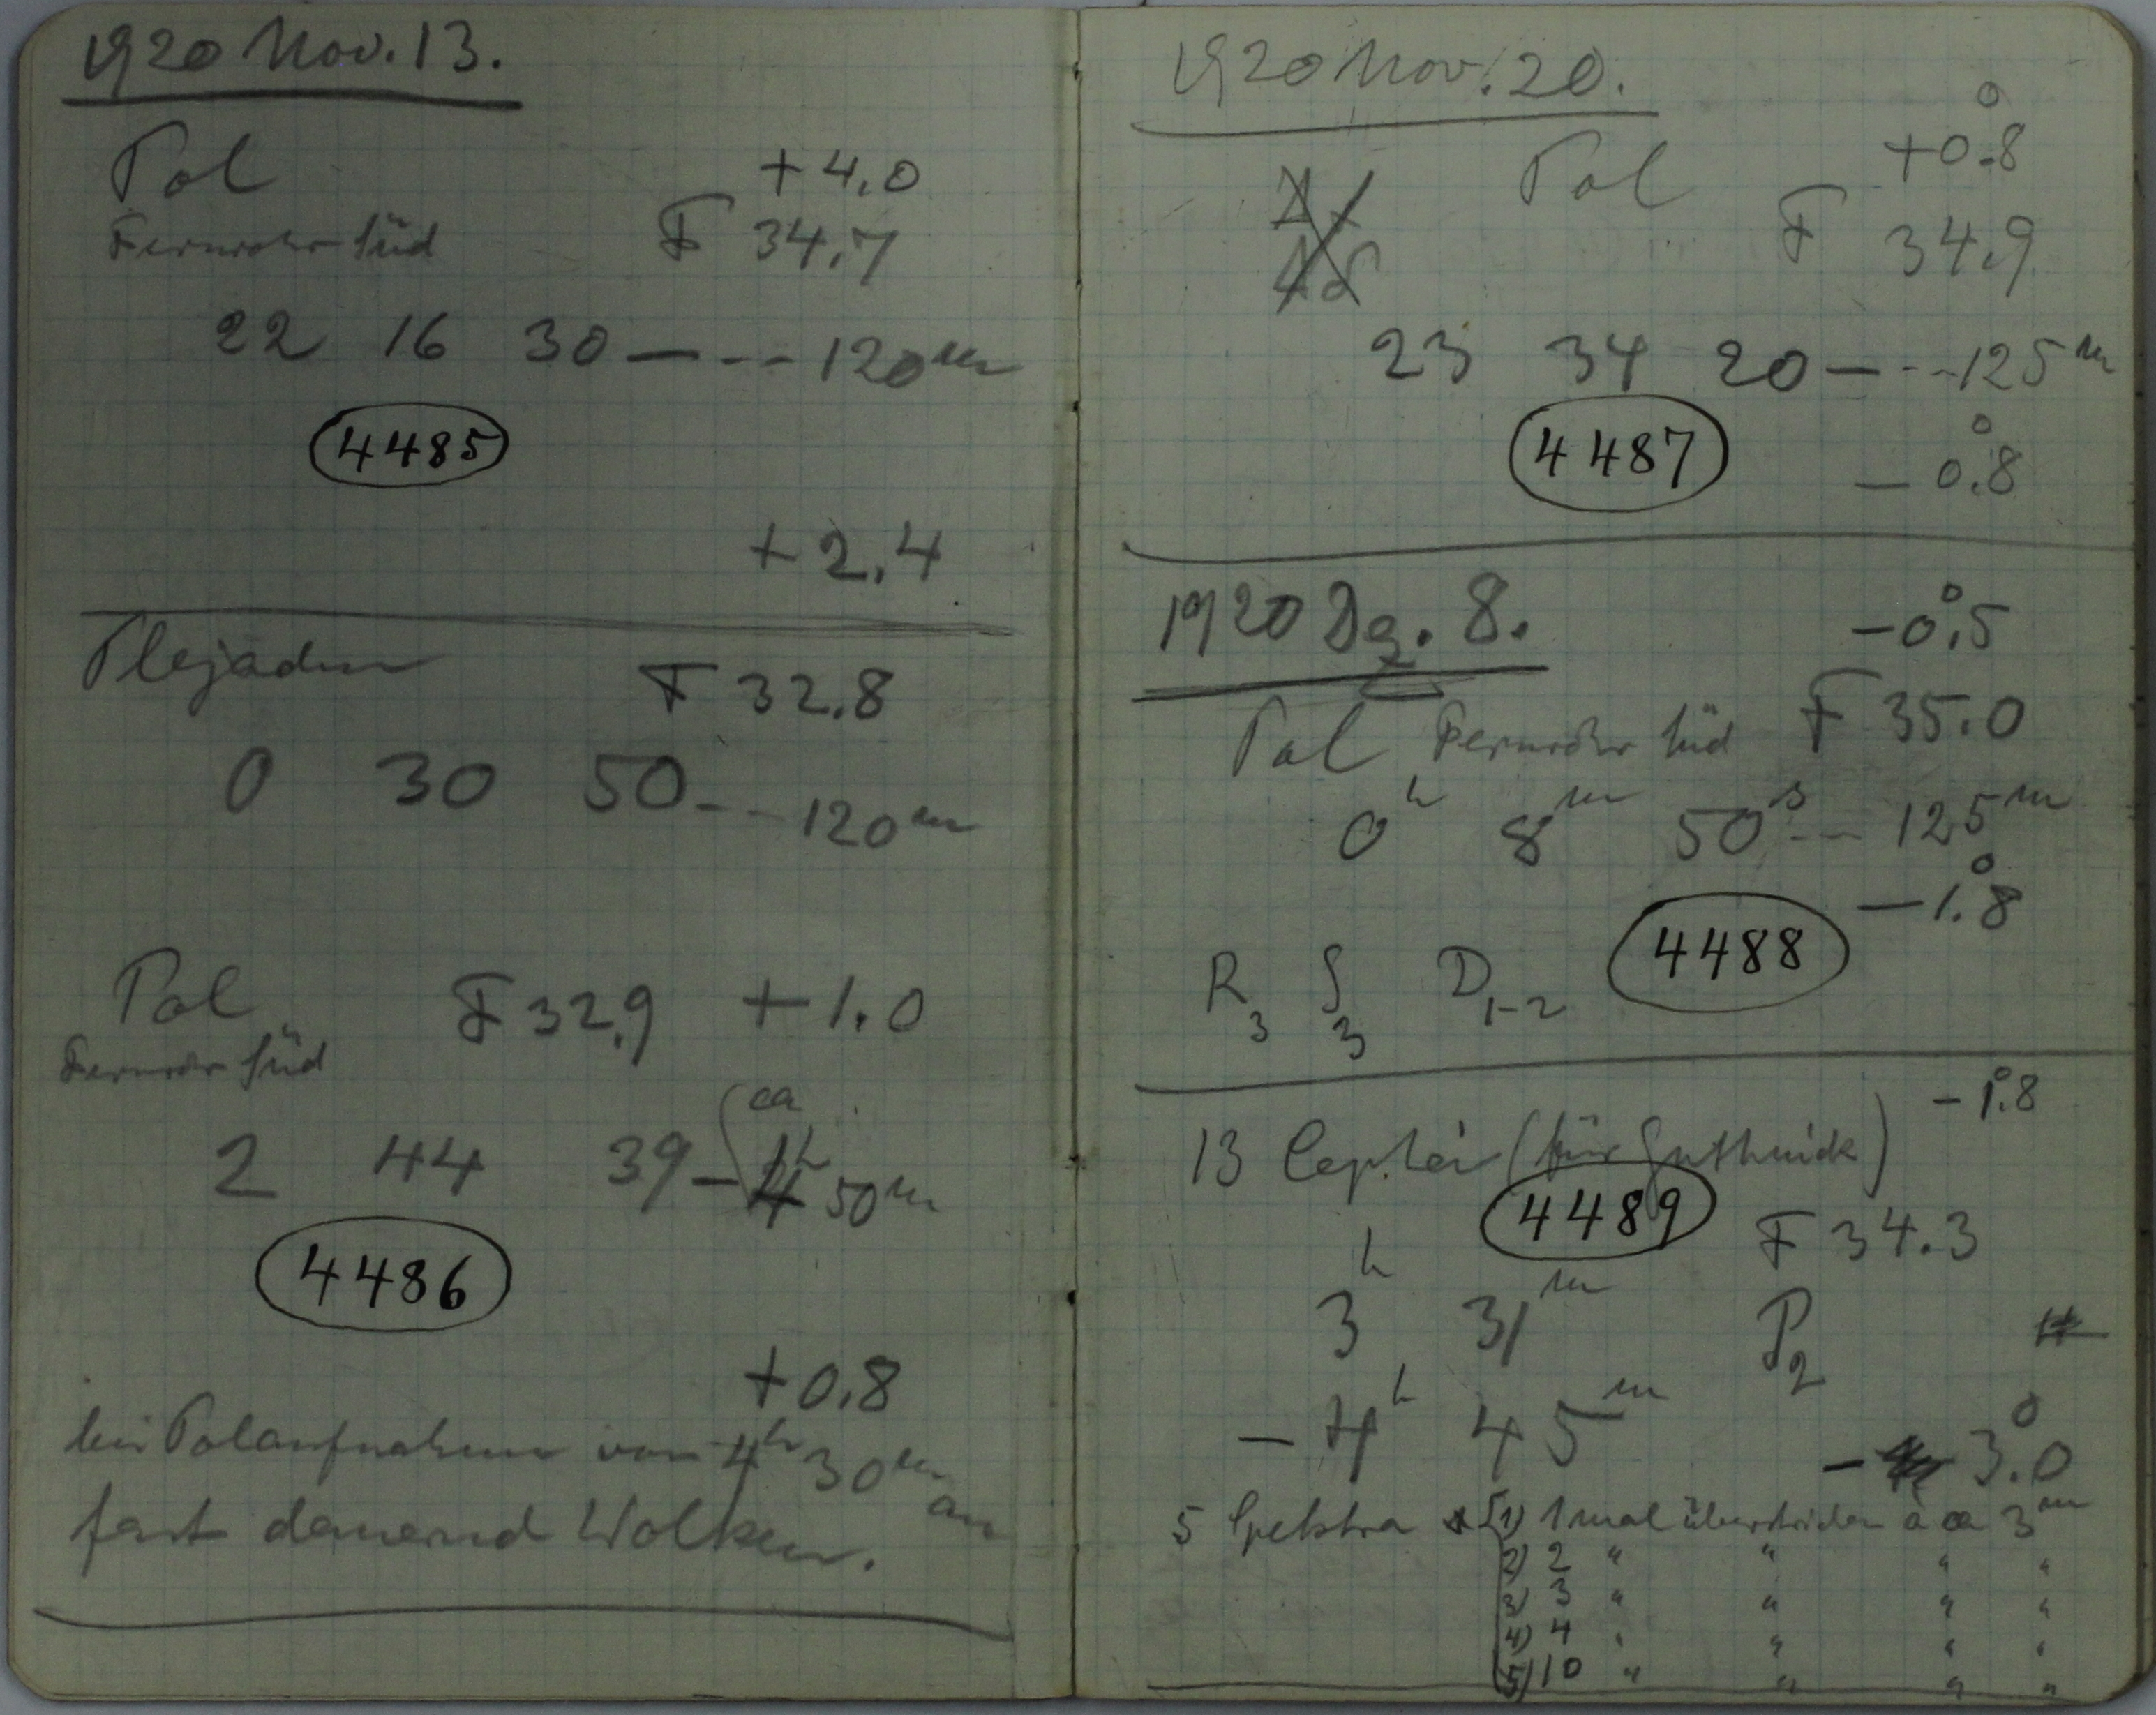 1920 Nov. 13.
Pol +4.0
Fernrohr Süd F 34.7
22 16 30 — - - - 120m
4485
+2.4
Plejaden F 32.8
0 30 50 - - - 120m
Pol F 32.9 +1.0
Fernrohr Süd
ca
2 44 39 — 1h 50m
4486
+0.8
bei Polaufnahme von 4h 30m an
fast dauernd Wolken.
1920 Nov. 20.
Pol +0°.8
F 34.9
23 34 20 — - - - 125m
4487
-0°.8
1920 Dz. 8. -0°.5
Pol Fernrohr Süd F 35.0
0h 8m 50s - - - 125m
-1°.8
4488
R3 S3 D1-2
-1°.8
13 Cephei (für Guthnick)
4489
F 34.3
3h 31m P2
- 4h 45m
- 3°.0
5 Spektra 1) 1 mal überstrichen à ca 3m
2) 2 " " " "
3) 3 " " " "
4) 4 " " " "
5) 10 " " " "